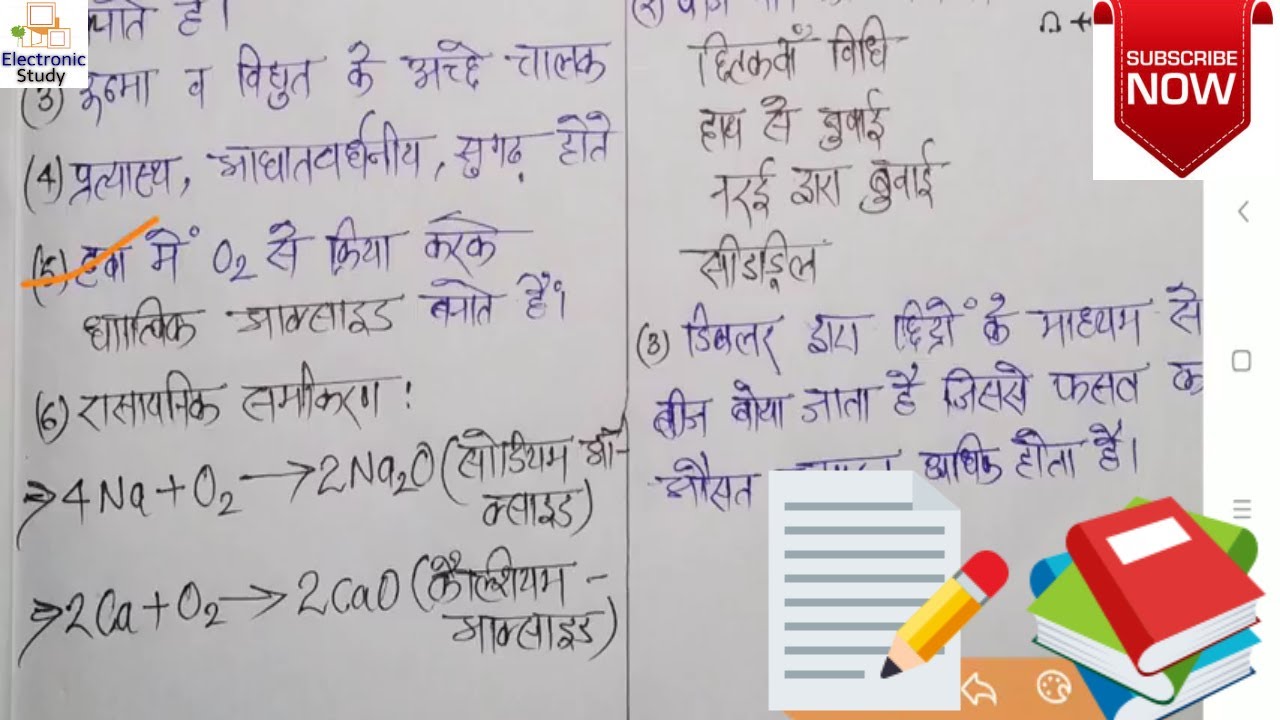 Electronic
Study
(3) ऊष्मा व विद्युत के अच्छे चालक
(4) प्रत्यास्थ, आघातवर्धनीय, सुगढ़ होते
(5) हवा में O₂ से क्रिया करके
धात्विक आक्साइड बनाते हैं।
(6) रासायनिक समीकरण :
⇒ 4Na + O₂ → 2Na₂O (सोडियम ऑ-
क्साइड)
⇒ 2Ca + O₂ → 2CaO (कैल्शियम -
आक्साइड)
छिटकवाँ विधि
हाथ से बुवाई
नरई द्वारा बुवाई
सीडड्रिल
(3) डिबलर द्वारा छिद्रों के माध्यम से
बीज बोया जाता है जिससे फसल क
औसत अधिक होता है।
SUBSCRIBE
NOW